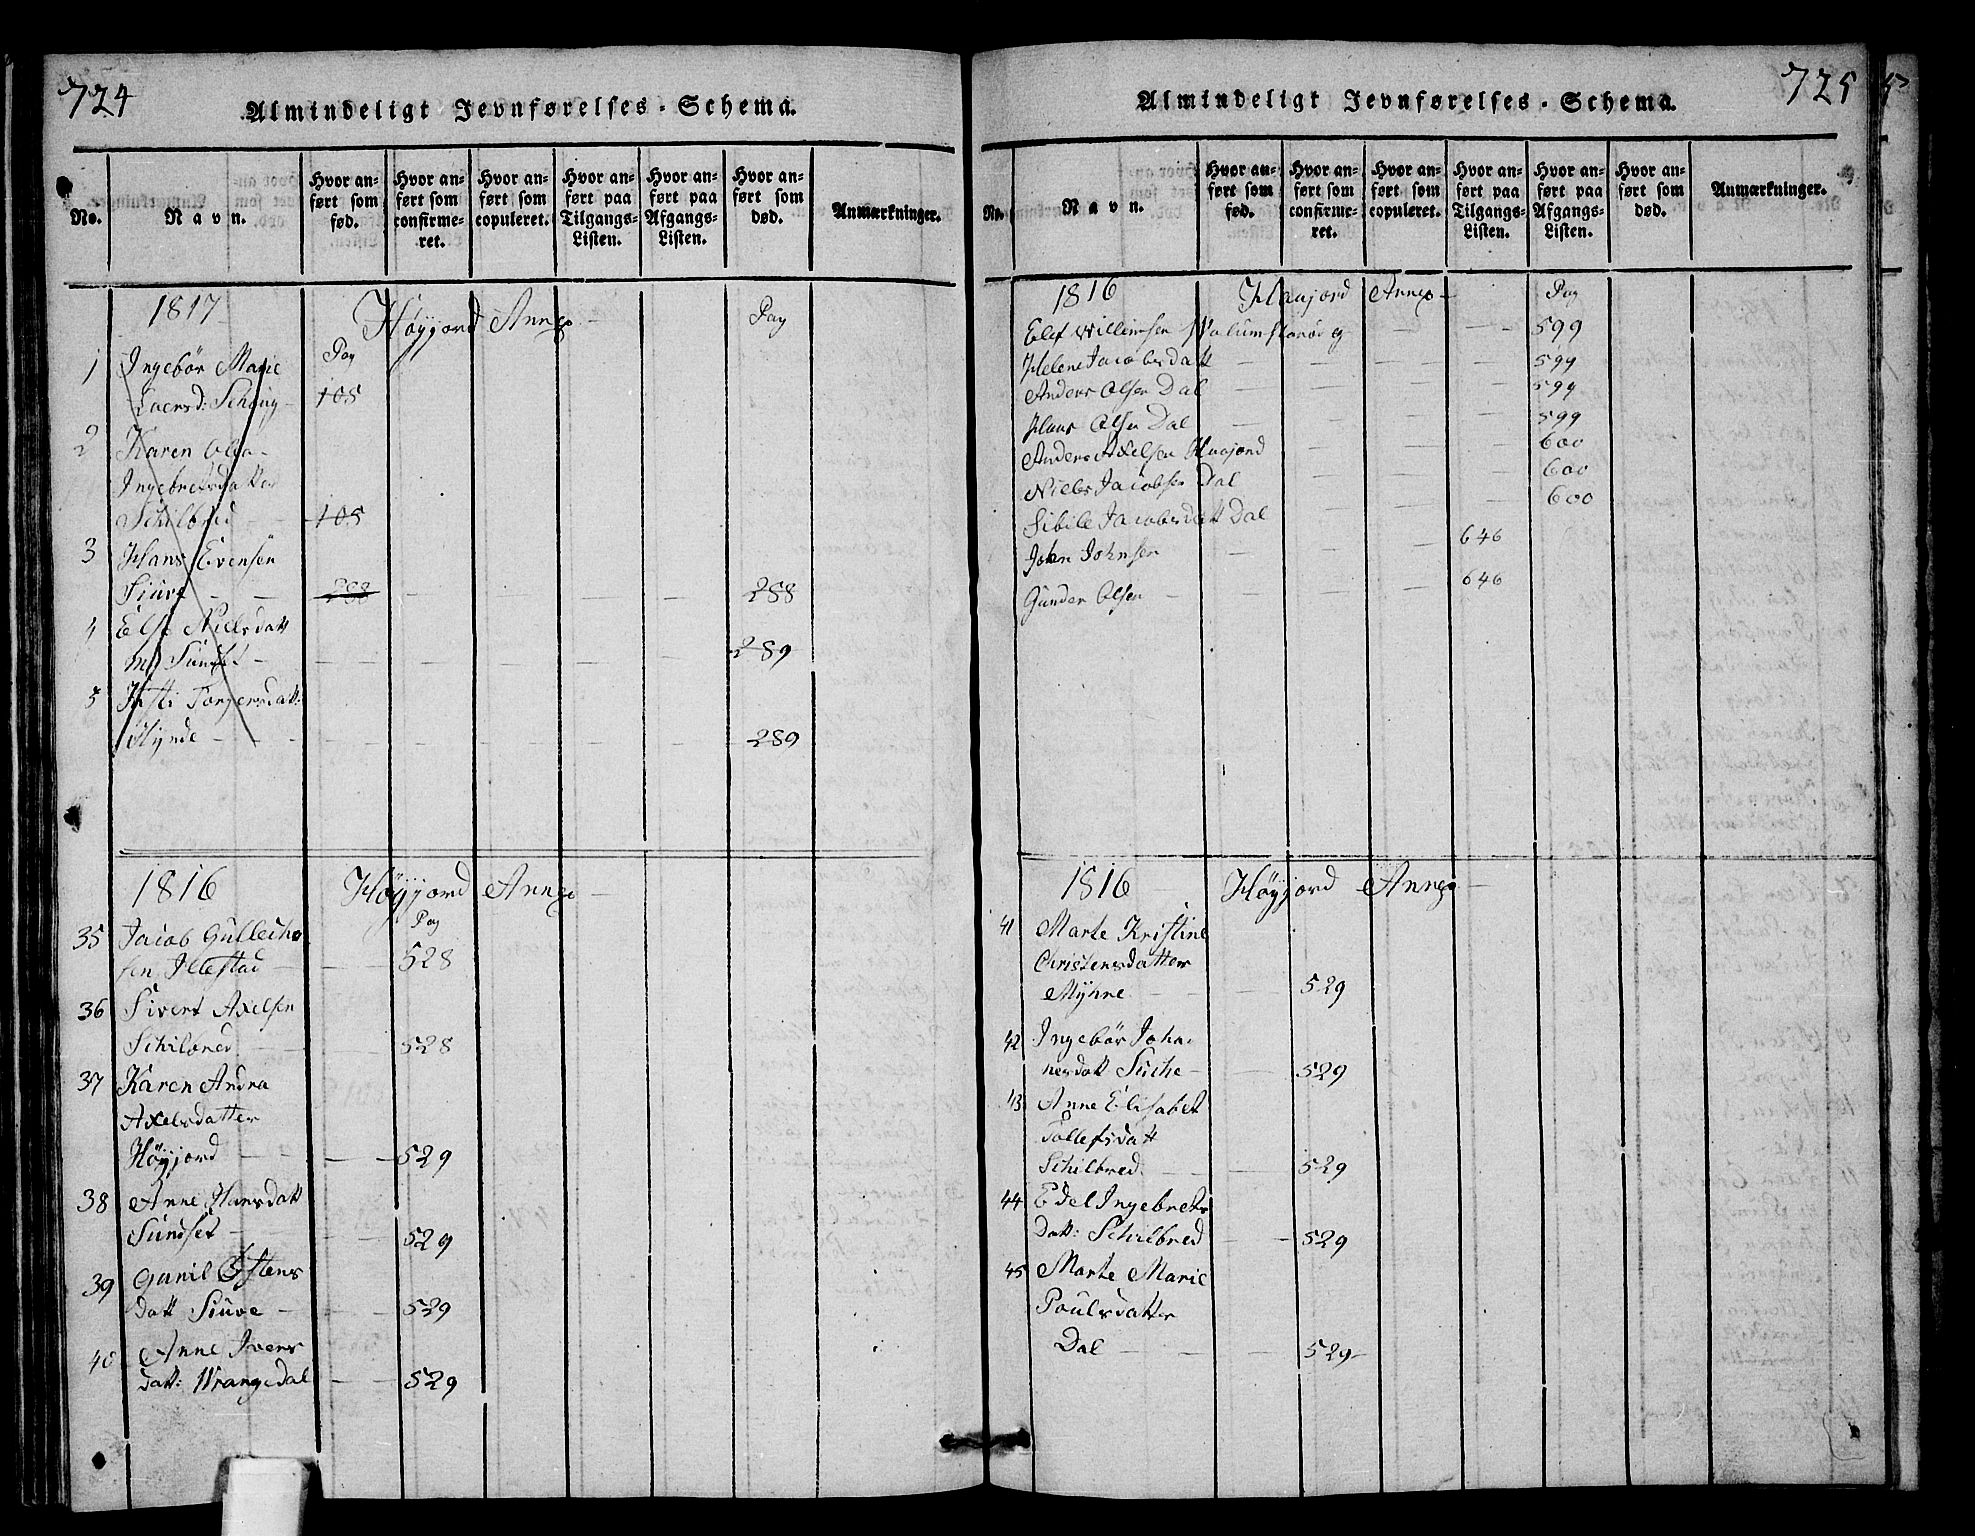 724
Almindeligt Jevnførelses-Schema.
No.
Navn.
Hvor anført som fød.
Hvor anført som confirmeret.
Hvor anført som copuleret.
Hvor anført paa Tilgangs-Listen.
Hvor anført paa Afgangs-Listen.
Hvor anført som død.
Anmærkninger.
1817 Høyjord Annex Pag
1 Ingebør Marie Pag
105
2 Karen
Ingebretsdatter
Schilbred 105
3 Hans Evensen
Siuve 288 288
4 Else Nielsdatt
Sundset 289
5 Torgersdatt:
289
1816 Høyjord Annex
Pag
35 Jacob Gulleichs
sen Illestad 528
36 Sivert Axelsen
Schilbred 528
37 Karen Andrea
Axelsdatter
Høyjord 529
38 Anne Hansdatt
Sundset 529
39 Gunil Østens
datt Siuve 529
40 Anne Ivers
datt: Wrangedal 529
725
Almindeligt Jevnførelses-Schema.
No.
Navn.
Hvor anført som fød.
Hvor anført som confirmeret.
Hvor anført som copuleret.
Hvor anført paa Tilgangs-Listen.
Hvor anført paa Afgangs-Listen.
Hvor anført som død.
Anmærkninger.
1816 Annex Pag
Elef Willumsen 599
Helene Jacobsdatt 599
Anders Olsen Dal 599
Hans Olsen Dal 599
Anders Axelsen 600
Niels Jacobsen Dal 600
Sibile Jacobsdatt Dal 600
John Johnsen 646
Gunder Olsen 646
1816 Høyjord Annex
41 Marte Kristine
Christensdatter
Myhre 529
42 Ingebør Joha-
nesdatt 529
43 Anne Elisabet
Tollefsdatt
Schilbred 529
44 Edel Ingebrets
datt: Schilbred 529
45 Marte Marie
Poulsdatter
Dal 529